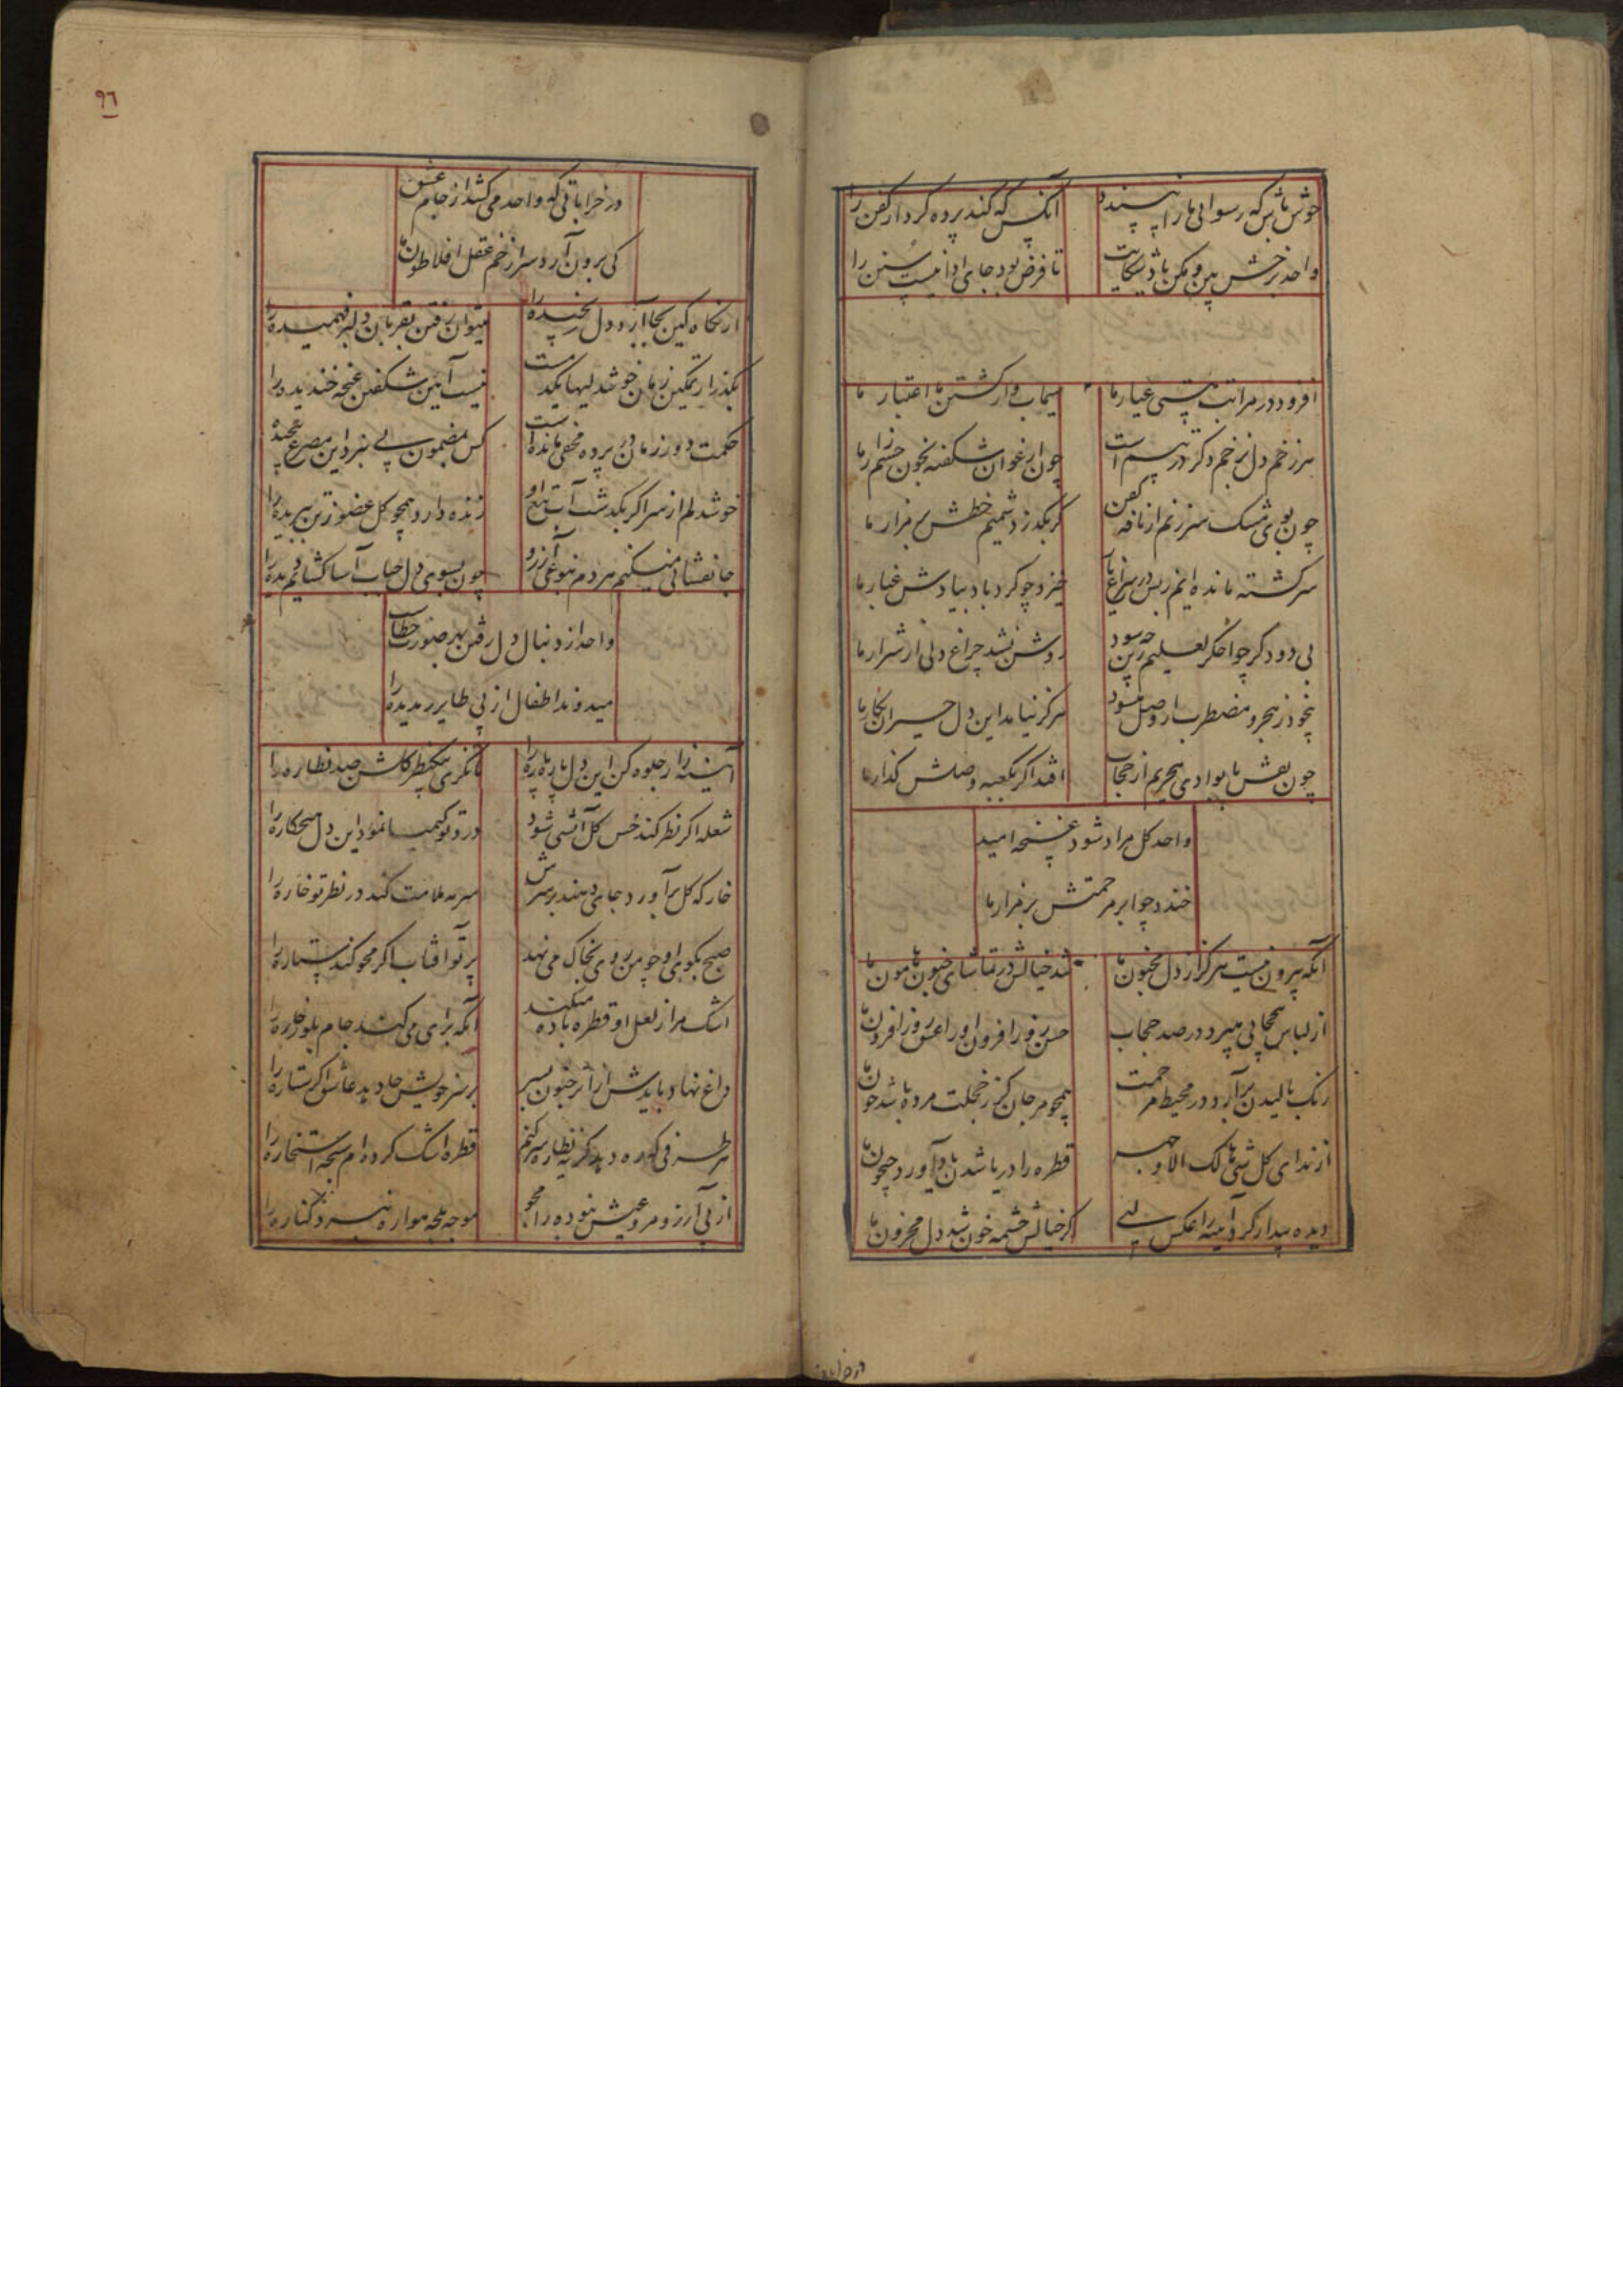 خوش باش که رسوائی ما را نپسندد
آنکس که کند پرده کردار کفن را
واحد برخش بین و مکن باز شکایت
تا فرض بود جای ادا نیست سنن را
افزود در مراتب پستی عیار ما
سیماب وار کشتن ما اعتبار ما
هر زخم دل ز خم دگر در پیست
چون ارغوان شکفته بخون
چون بوی مشک سر زنم از نافه کفن
گر بگذرد شمیم خطش بر مزار ما
سرگشته مانده ایم ز بس در سراغ یار
خیزد چو گردباد بیادش غبار ما
بی دود گر چو اخگر لعلیم زین چه سود
روشن نشد چراغ دلی از شرار ما
بیخود ز هجر و مضطرب از وصل میشود
هرگز نیامد این دل حیران بکار ما
چون نقش پا بوادی هجریم از حجاب
افتد اگر بکعبه وصلش گذار ما
واحد گل مراد شود غنچه امید
خندد چو ابر مرحمتش بر مزار ما
آنکه بیرون نیست هرگز از دل مجنون ما
شد خیالش در تماشای جنون هامون ما
از لباس بیحجابی میبرد در صد حجاب
حسن روز افزون او را عشق روز افزون ما
رنگ بالیدن برآرد در محیط مرحمت
همچو مرجان کز خجلت مرده باشد خون ما
از ندای کل شئ هالک الا وجهه
قطره را دریا شدن یاد آورد جیحون ما
دیده بیدار کرد آینه را عکس
گر خیالش چشمه خون شد دل محزون ما
در خرابات
۹۶
در خراباتی که واحد می کشد از جام عشق
کی برون آرد سر از خم عقل افلاطون ما
از نگاه کین بجا آرد دل رنجیده را
میتوان رفتن بقربان دلبر فهمیده را
بگذر از تمکین زمان خوشدلیها یکدمست
نیست آیین شکفتن غنچه خندیده را
حکمت دوز زمان در پرده مخفی مانده است
کس مضمون پی نبرد این مصرع پیچیده را
خوشدلم از سر اگر بگذشت آب تیغ او
زنده دارد همچو گل عضو ز تن ببریده را
جانفشانی میکنیم هر دم آرزو
چون بسوی دل حباب آسا گشادم دیده را
واحد از دنبال دل رفتن بهر صورت خطاست
میدوند اطفال از پی طایر رمیده را
آینه زار جلوه کن این دل پاره پاره را
تا نگری بیکنظر گلشن صد نظاره را
شعله اگر نظر کند خس گل آتشی شود
درد تو کیمیا نمود این دل هیچکاره را
خار که گل برآورد جای دهند بر سرش
سرمه ملامت کند در نظر تو خاره را
صبح بکوی او چو من روی بخاک می نهد
پرتو آفتاب اگر محو کند ستاره را
اشک مرا ز لعل او قطره باده میکند
آنکه برای می کند جام بلور خاره را
داغ نهاد بایدش از اثر جنون بسر
بر سر خویش جا دهد عاشق اگر ستاره را
هر طرفی که ره دهد گریه نظاره سر کنم
قطره اشک کرده ام سبحه استخاره را
از پی آرزو مرو عیش نبوده را مجو
موجه بلجه مواره نبرد کناره را